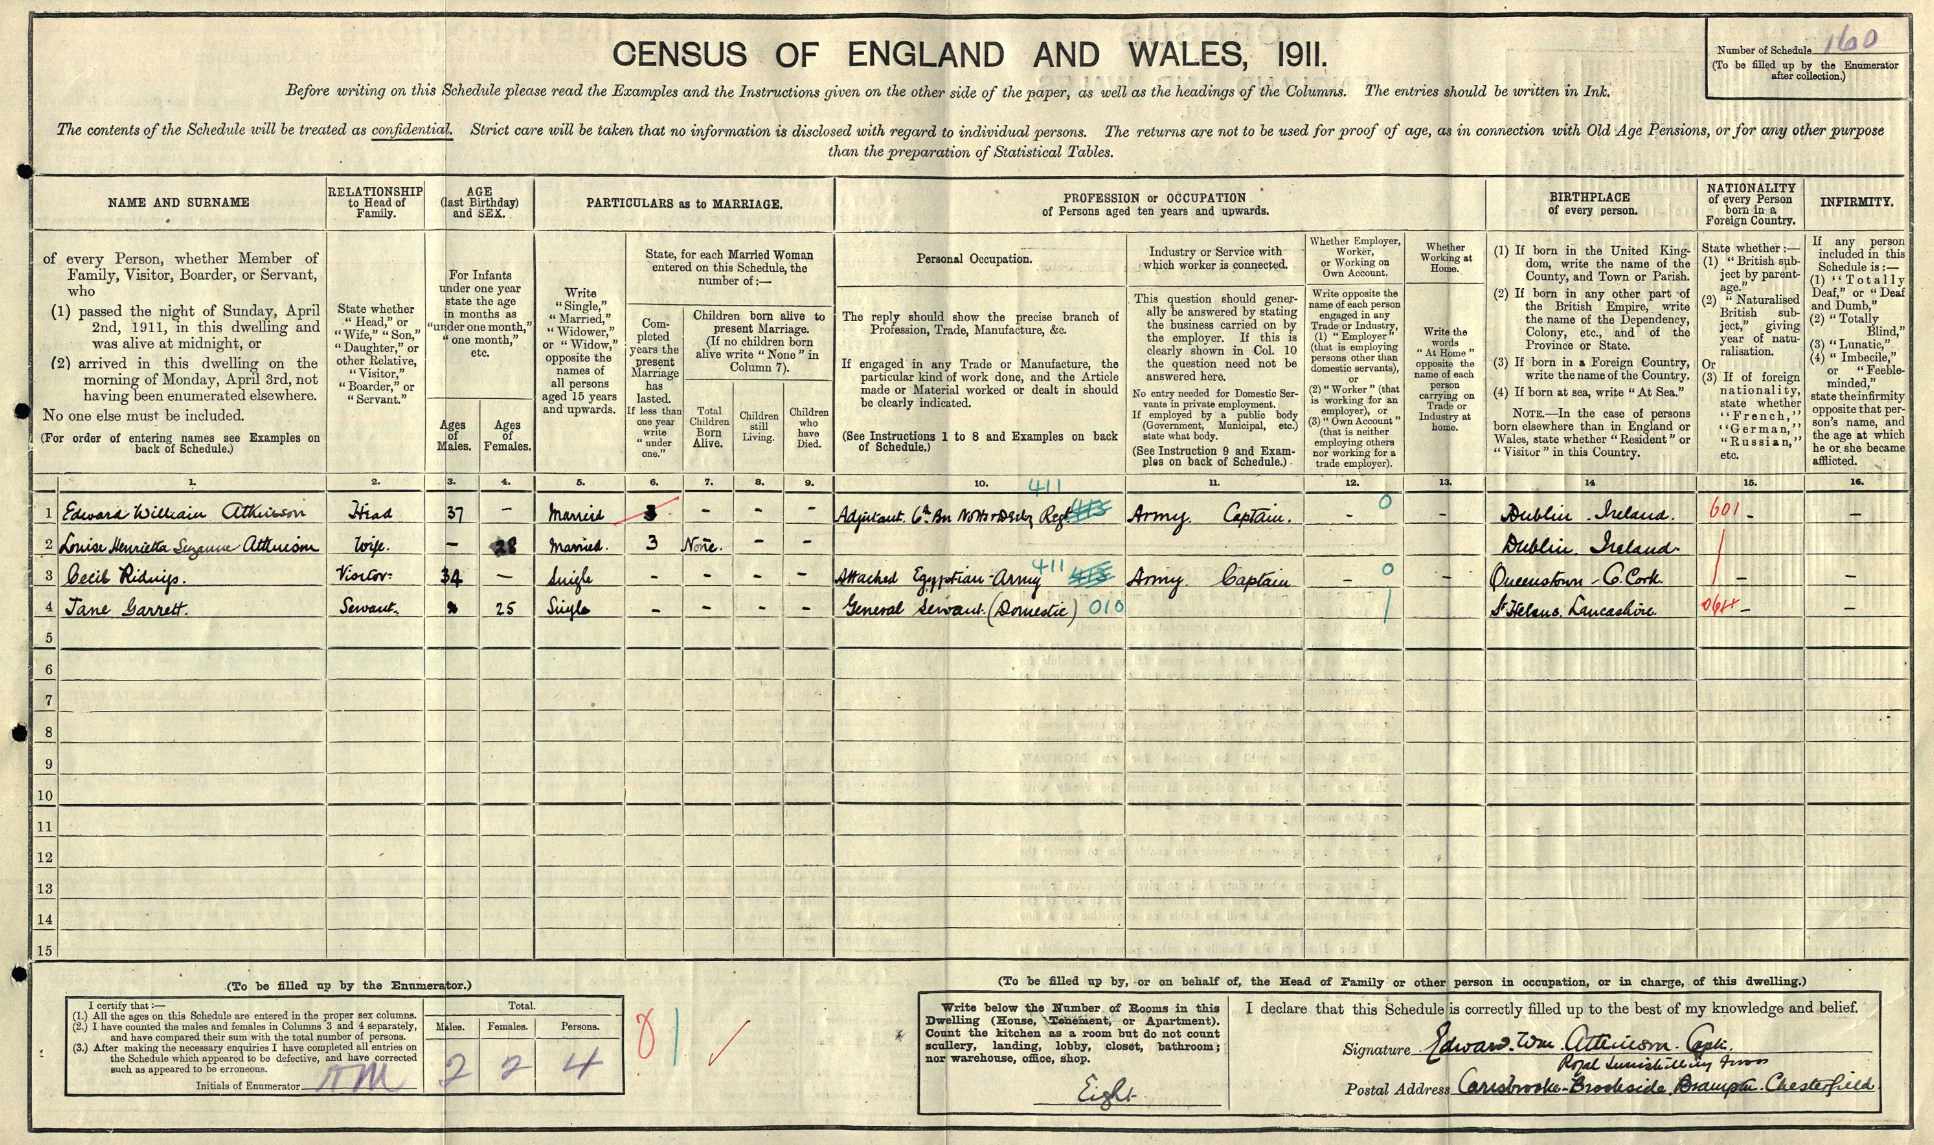 CENSUS OF ENGLAND AND WALES, 1911.
Number of Schedule 160
(To be filled up by the Enumerator
after collection.)
Before writing on this Schedule please read the Examples and the Instructions given on the other side of the paper, as well as the headings of the Columns. The entries should be written in Ink.
The contents of the Schedule will be treated as confidential. Strict care will be taken that no information is disclosed with regard to individual persons. The returns are not to be used for proof of age, as in connection with Old Age Pensions, or for any other purpose
than the preparation of Statistical Tables.
NAME AND SURNAME
of every Person, whether Member of
Family, Visitor, Boarder, or Servant,
who
(1) passed the night of Sunday, April
2nd, 1911, in this dwelling and
was alive at midnight, or
(2) arrived in this dwelling on the
morning of Monday, April 3rd, not
having been enumerated elsewhere.
No one else must be included.
(For order of entering names see Examples on
back of Schedule.)
RELATIONSHIP
to Head of
Family.
State whether
"Head," or
"Wife," "Son,"
"Daughter," or
other Relative,
"Visitor,"
"Boarder," or
"Servant."
AGE
(last Birthday)
and SEX.
For Infants
under one year
state the age
in months as
"under one month,"
"one month,"
etc.
Ages
of
Males.
Ages
of
Females.
PARTICULARS as to MARRIAGE.
Write
"Single,"
"Married,"
"Widower,"
or "Widow,"
opposite the
names of
all persons
aged 15 years
and upwards.
State, for each Married Woman
entered on this Schedule, the
number of:—
Com-
pleted
years the
present
Marriage
has
lasted.
If less than
one year
write
"under
one."
Children born alive to
present Marriage.
(If no children born
alive write "None" in
Column 7).
Total
Children
Born
Alive.
Children
still
Living.
Children
who
have
Died.
PROFESSION or OCCUPATION
of Persons aged ten years and upwards.
Personal Occupation.
The reply should show the precise branch of
Profession, Trade, Manufacture, &c.
If engaged in any Trade or Manufacture, the
particular kind of work done, and the Article
made or Material worked or dealt in should
be clearly indicated.
(See Instructions 1 to 8 and Examples on back
of Schedule.)
Industry or Service with
which worker is connected.
This question should gener-
ally be answered by stating
the business carried on by
the employer. If this is
clearly shown in Col. 10
the question need not be
answered here.
No entry needed for Domestic Ser-
vants in private employment.
If employed by a public body
(Government, Municipal, etc.)
state what body.
(See Instruction 9 and Exam-
ples on back of Schedule.)
Whether Employer,
Worker,
or Working on
Own Account.
Write opposite the
name of each person
engaged in any
Trade or Industry,
(1) "Employer"
(that is employing
persons other than
domestic servants),
or
(2) "Worker" (that
is working for an
employer), or
(3) "Own Account"
(that is neither
employing others
nor working for a
trade employer).
Whether
Working at
Home.
Write the
words
"At Home"
opposite the
name of each
person
carrying on
Trade or
Industry at
home.
BIRTHPLACE
of every person.
(1) If born in the United King-
dom, write the name of the
County, and Town or Parish.
(2) If born in any other part of
the British Empire, write
the name of the Dependency,
Colony, etc., and of the
Province or State.
(3) If born in a Foreign Country,
write the name of the Country.
(4) If born at sea, write "At Sea."
NOTE.—In the case of persons
born elsewhere than in England or
Wales, state whether "Resident" or
"Visitor" in this Country.
NATIONALITY
of every Person
born in a
Foreign Country.
State whether:—
(1) "British sub-
ject by parent-
age."
(2) "Naturalised
British sub-
ject," giving
year of natu-
ralisation.
Or
(3) If of foreign
nationality,
state whether
"French,"
"German,"
"Russian,"
etc.
INFIRMITY.
If any person
included in this
Schedule is:—
(1) "Totally
Deaf," or "Deaf
and Dumb,"
(2) "Totally
Blind,"
(3) "Lunatic,"
(4) "Imbecile,"
or "Feeble-
minded,"
state the infirmity
opposite that per-
son's name, and
the age at which
he or she became
afflicted.
1. 2. 3. 4. 5. 6. 7. 8. 9. 10. 11. 12. 13. 14 15. 16.
1 Edward William Atkinson Head 37 — Married 3 - - - Adjutant. 6th Bn Notts & Derby Regt 411 Army. Captain. 0 - - Dublin. Ireland. 601 - -
2 Louise Henrietta Suzanne Atkinson Wife. — 28 Married. 3 None. - - Dublin. Ireland.
3 Cecil Ridings. Visitor 34 — Single - - - - Attached Egyptian-Army 411 Army. Captain 0 - - Queenstown - Co. Cork - -
4 Jane Garrett. Servant. 25 Single - - - - General Servant. (Domestic) 010 1 St Helens. Lancashire. - -
5
6
7
8
9
10
11
12
13
14
15
(To be filled up by the Enumerator.)
I certify that:—
(1.) All the ages on this Schedule are entered in the proper sex columns.
(2.) I have counted the males and females in Columns 3 and 4 separately,
and have compared their sum with the total number of persons.
(3.) After making the necessary enquiries I have completed all entries on
the Schedule which appeared to be defective, and have corrected
such as appeared to be erroneous.
Initials of Enumerator
Total.
Males. Females. Persons.
2 2 4
8 1
(To be filled up by, or on behalf of, the Head of Family or other person in occupation, or in charge, of this dwelling.)
Write below the Number of Rooms in this
Dwelling (House, Tenement, or Apartment).
Count the kitchen as a room but do not count
scullery, landing, lobby, closet, bathroom;
nor warehouse, office, shop.
Eight
I declare that this Schedule is correctly filled up to the best of my knowledge and belief.
Signature Edward. Wm. Atkinson. Capt.
Royal Inniskilling Fus
Postal Address Carisbrooke - Brookside. Brampton. Chesterfield